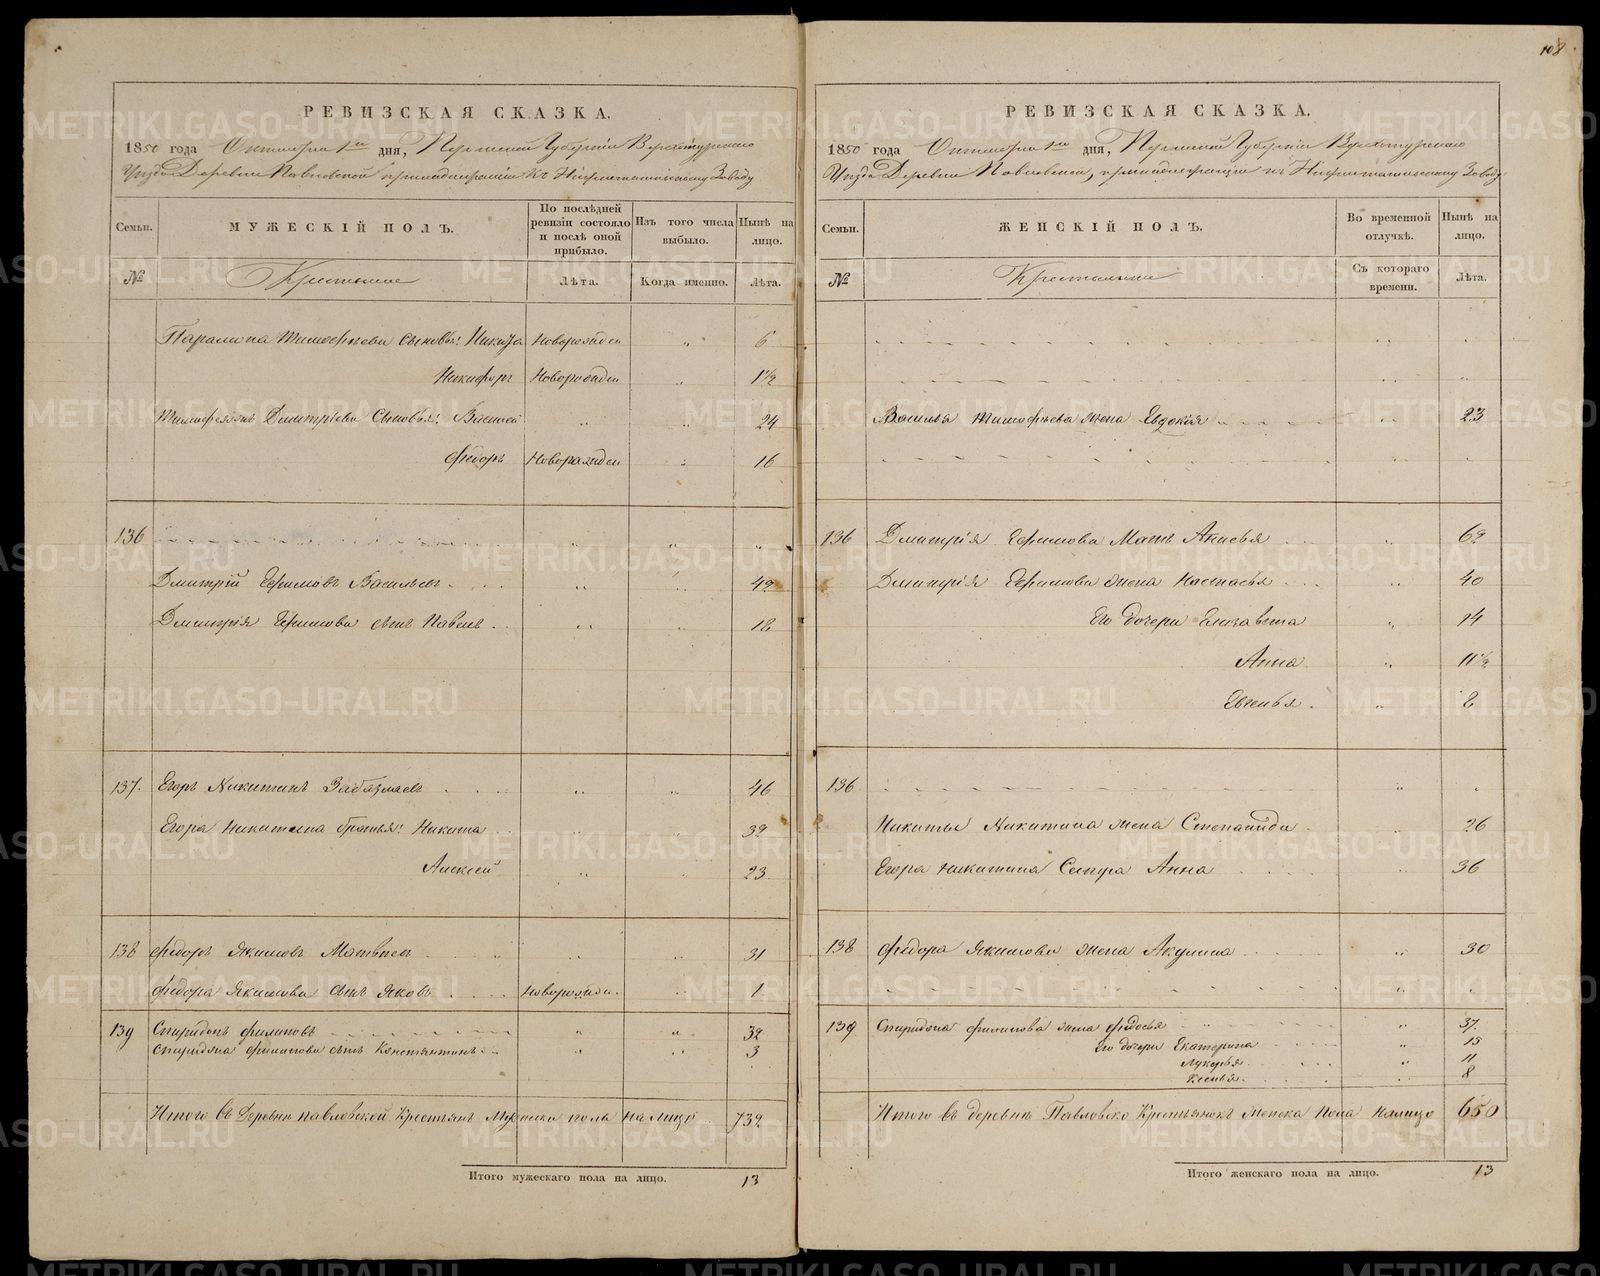 108
РЕВИЗСКАЯ СКАЗКА.
1850 года Октября 1го дня, Пермской Губерніи Верхотурскаго
Уѣзда Деревни Павловской принадлежащей къ Нижнетагильскому Заводу
Семьи.
МУЖЕСКІЙ ПОЛЪ.
По послѣдней ревизіи состояло и послѣ оной прибыло.
Изъ того числа выбыло.
Нынѣ на лицо.
№
Крестьяне
Лѣта.
Когда именно.
Лѣта.
Тимофѣева сыновья: Никита Новорожден 6
Никифоръ Новорожден 1½
Дмитріева Сыновья: Василей " " 24
Федоръ Новорожден " 16
136
Дмитрій Ефимовъ Васильевъ " " 42
Дмитрія Ефимова сынъ Павелъ " " 18
137. Егоръ Никитинъ " " 46
Егора Никитина братья: Никита 39
Алексей " " 23
138 Федоръ Якимовъ Матвѣевъ " " 31
Федора Якимова сынъ Яковъ Новорожден. " 1
139 Спиридонъ Филиповъ " " 32
Спиридона Филипова сынъ Константинъ " " 3
Итого въ Деревнѣ Павловской Крестьянъ Мужеска пола на лицо 732
Итого мужескаго пола на лицо. 13
РЕВИЗСКАЯ СКАЗКА.
1850 года Октября 1го дня, Пермской Губерніи Верхотурскаго
Уѣзда Деревни Павловской, принадлежащей къ Нижнетагильскому Заводу
Семьи.
ЖЕНСКІЙ ПОЛЪ.
Во временной отлучкѣ.
Нынѣ на лицо.
№
Крестьянки
Съ котораго времени.
Лѣта.
Василья Тимофѣева жена Евдокія " 23
136 Дмитрія Ефимова Мать Анисья " 62
Дмитрія Ефимова жена Настасья " 40
Его дочери Елизавета " 14
Анна " 11½
Евгенья " 8
136
Никиты Никитина жена Степанида 26
Егора Никитина Сестра Анна 36
138 Федора Якимова жена Акулина " 30
139 Спиридона Филипова жена Федосья " 37.
Его дочери Екатерина " 13
Лукерья " 11
Ксенья " 8
Итого въ деревнѣ Павловско Крестьянокъ Женска пола на лицо 650
Итого женскаго пола на лицо. 13
METRIKI.GASO-URAL.RU